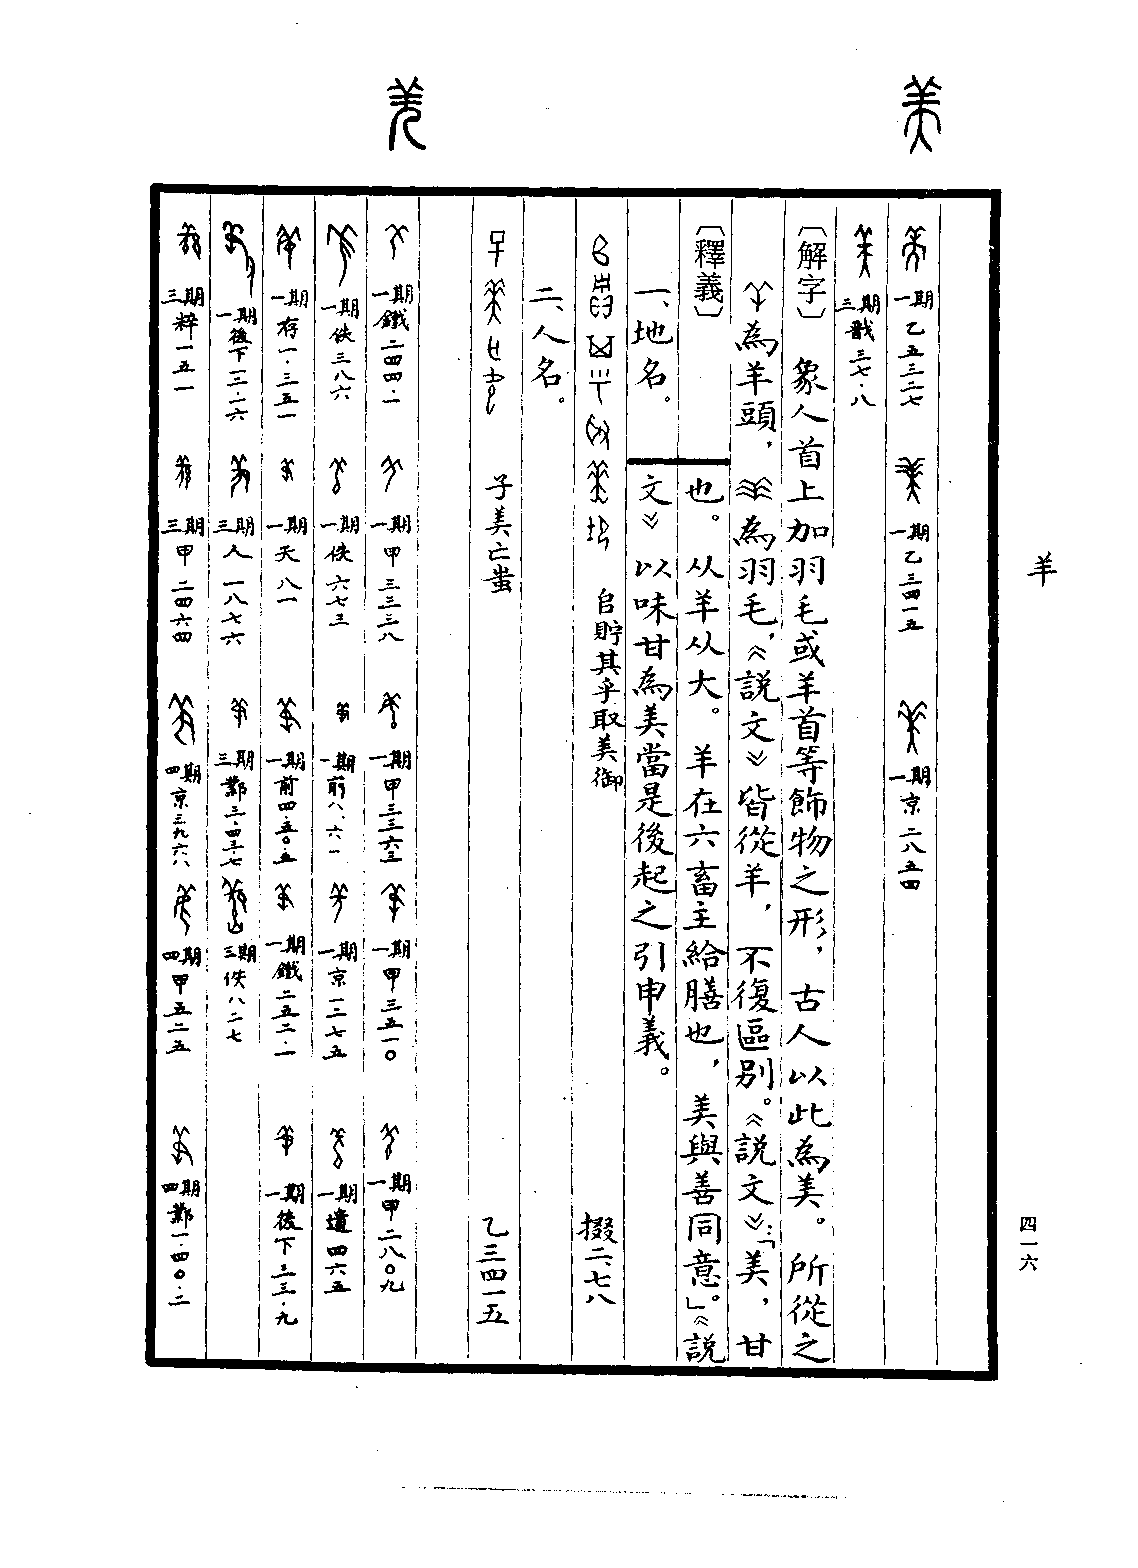 羊
四一六
美
羌
一期 乙五三二七
一期 乙三四一五
一期 京二八五四
三期 戩三七·八
〔解字〕 象人首上加羽毛或羊首等飾物之形，古人以此為美。所從之
為羊頭，為羽毛，《說文》皆從羊，不復區別。《說文》：「美，甘
也。从羊从大。羊在六畜主給膳也，美與善同意。」《說
文》以味甘為美當是後起之引申義。
〔釋義〕
一、地名。
㠯貯其乎取美御 掇二、七八
二、人名。
子美亡蚩 乙三四一五
一期 鐵二四四·一
一期 甲三三三八
一期 甲三三六三
一期 甲三五一〇
一期 甲二八〇九
一期 佚三八六
一期 佚六七三
一期 前八、六一
一期 京一二七五
一期 遺四六五
一期 存一·三五一
一期 天八一
一期 前四·五〇·五
一期 鐵二五二·一
一期 後下三三·九
一期 後下一三·六
三期 人一八七六
三期 鄴三·四三·七
三期 佚八二七
三期 粹一五一
三期 甲二四六四
四期 京三九六八
四期 甲五二五
四期 鄴一·四〇·二